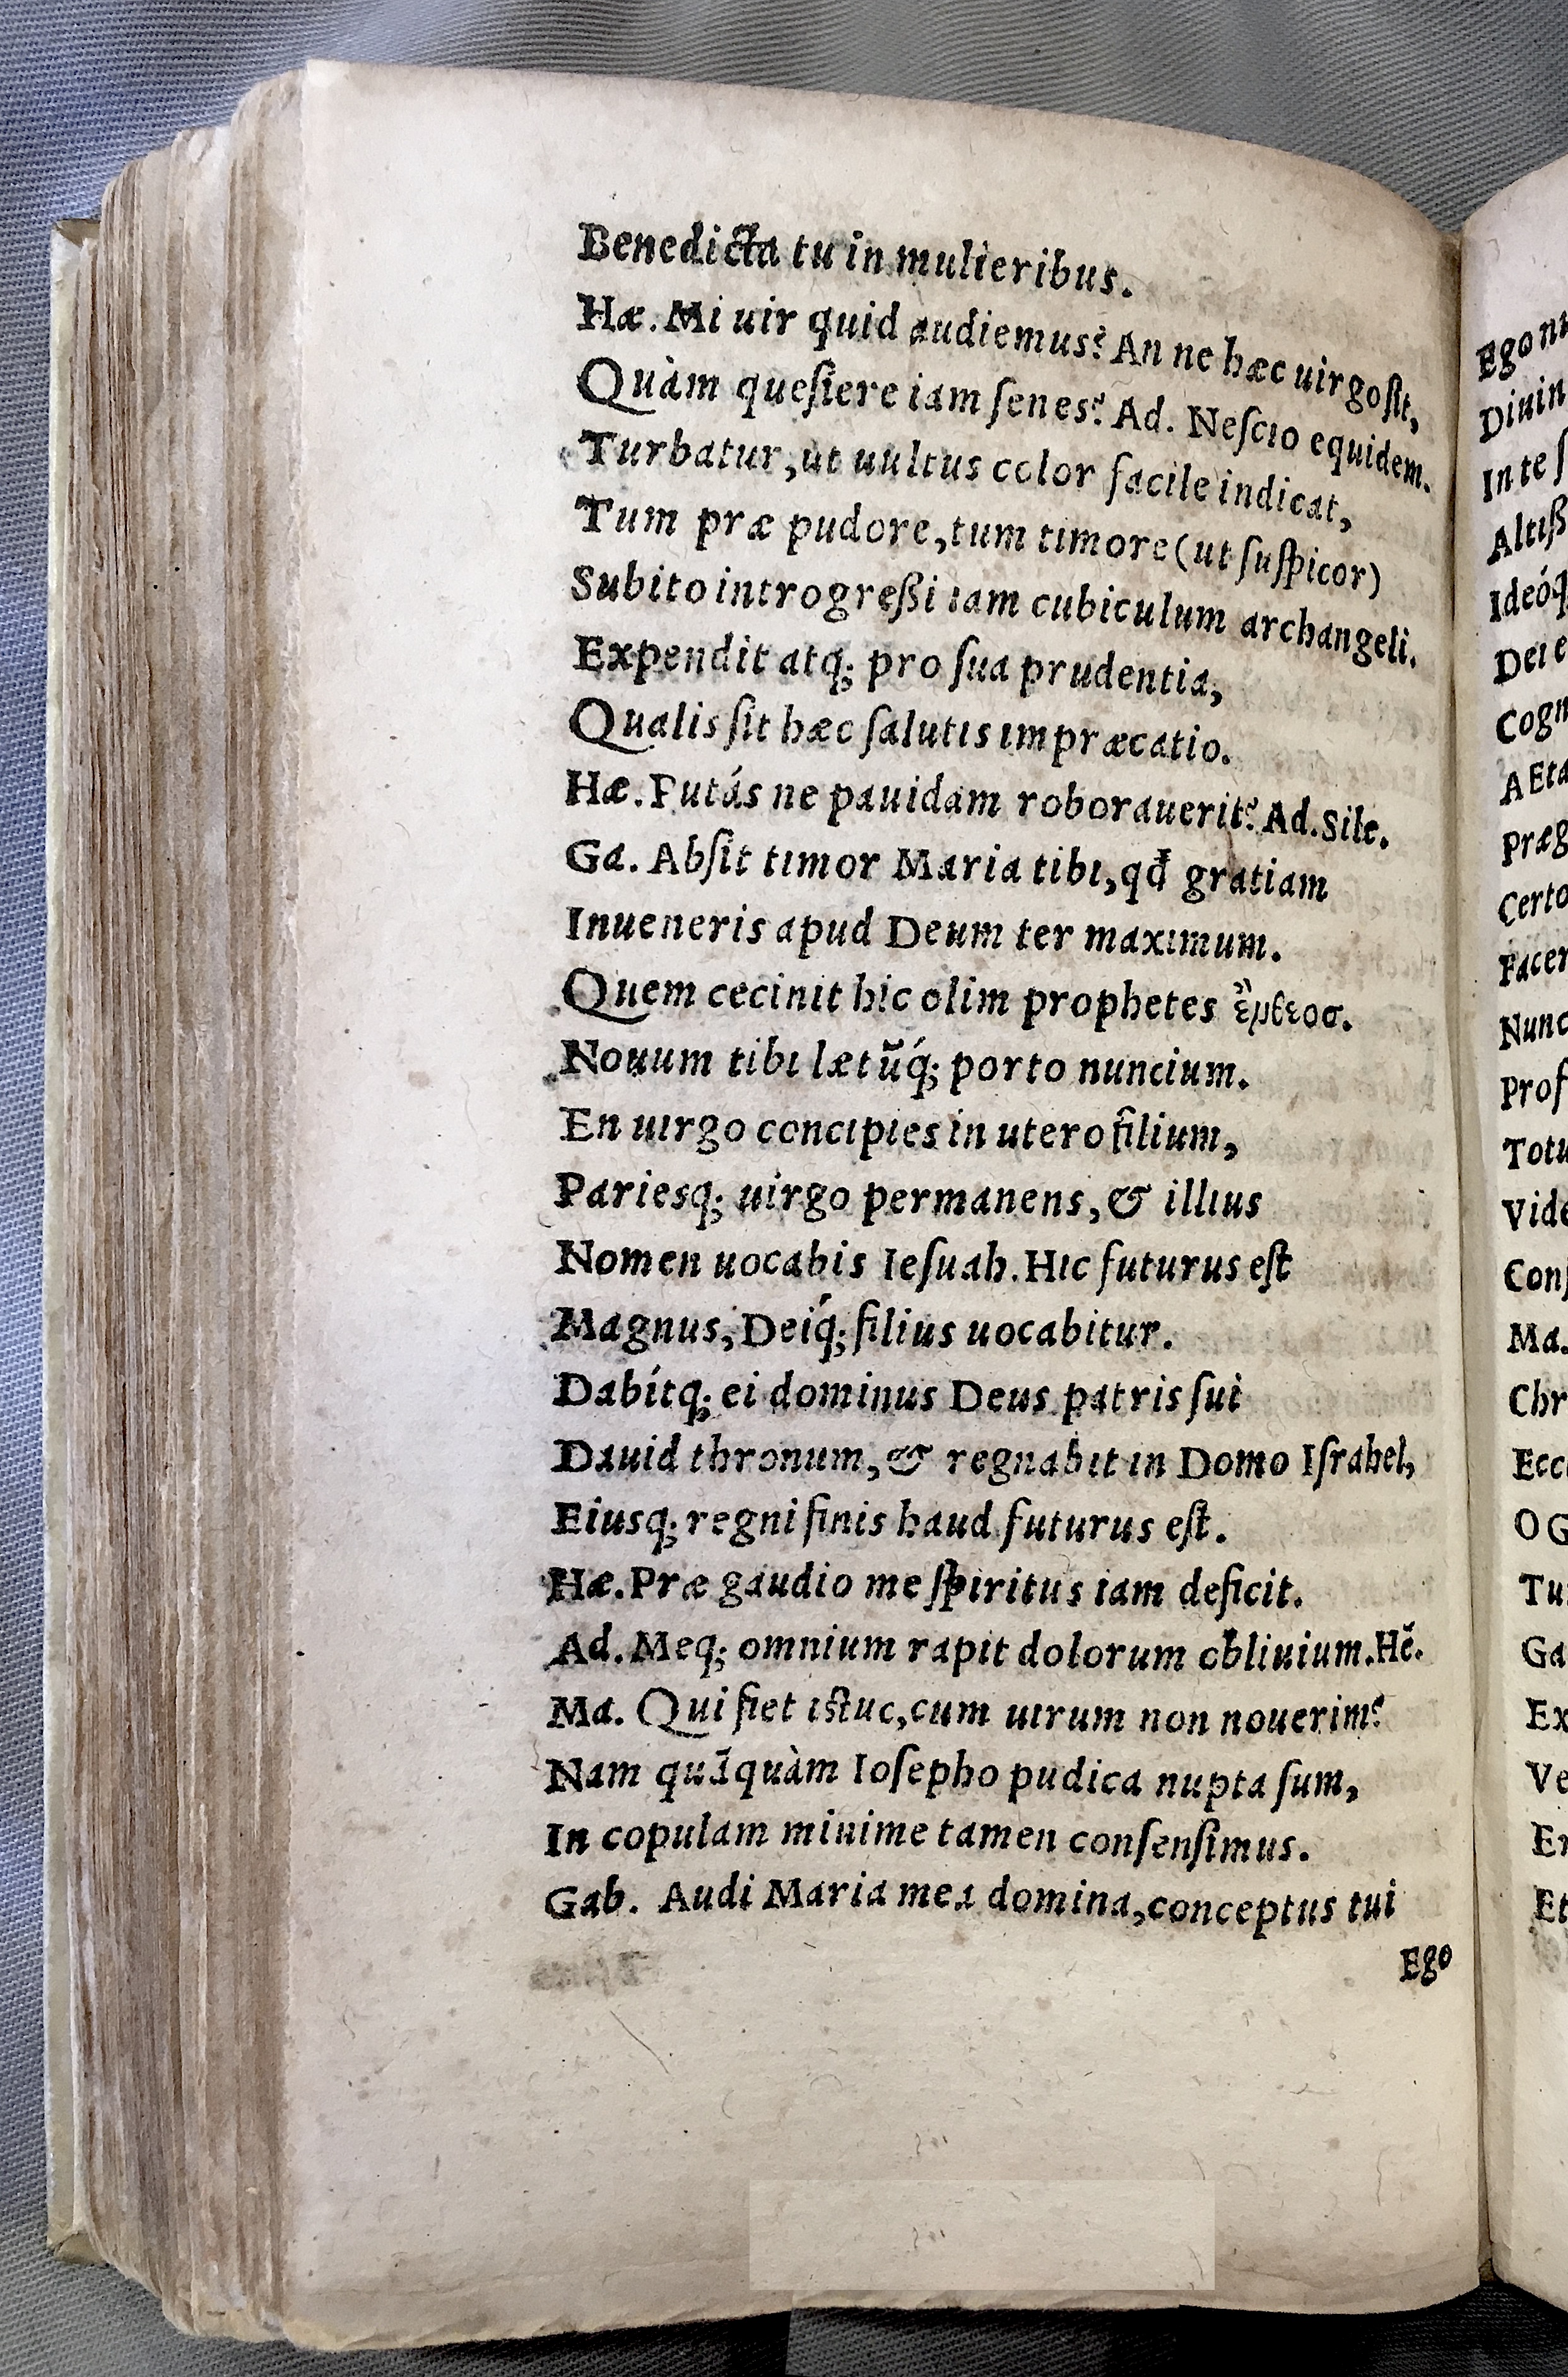 Benedicta tu in mulieribus.
Hæ. Mi uir quid audiemus? An ne hæc uirgo ſit,
Quàm queſiere iam ſenes? Ad. Neſcio equidem.
Turbatur, ut uultus color facile indicat,
Tum præ pudore, tum timore (ut ſuſpicor)
Subito introgreßi iam cubiculum archangeli.
Expendit atq; pro ſua prudentia,
Qualis ſit hæc ſalutis impræcatio.
Hæ. Putás ne pauidam roborauerit? Ad. Sile.
Ga. Abſit timor Maria tibi, qđ gratiam
Inueneris apud Deum ter maximum.
Quem cecinit hic olim prophetes
Nouum tibi lætũq́; porto nuncium.
En uirgo concipies in utero filium,
Pariesq; uirgo permanens, & illius
Nomen uocabis Ieſuah. Hic futurus eſt
Magnus, Deiq́; filius uocabitur.
Dabítq; ei dominus Deus patris ſui
Dauid thronum, & regnabit in Domo Iſrahel,
Eiusq; regni finis haud futurus eſt.
Hæ. Præ gaudio me ſpiritus iam deficit.
Ad. Meq; omnium rapit dolorum obliuium. Hẽ.
Ma. Qui fiet iſtuc, cum uirum non nouerim?
Nam quãquàm Ioſepho pudica nupta ſum,
In copulam miuime tamen conſenſimus.
Gab. Audi Maria mea domina, conceptus tui
Ego
Ego
Diuin
In te
Altiß
Ideóq
Dei e
Cogn
AEta
Præg
Certo
Facer
Nunc
Prof
Totu
Vide
Conſ
Ma.
Chr
Ecc
O G
Tu
Ga
Ex
Ve
Et